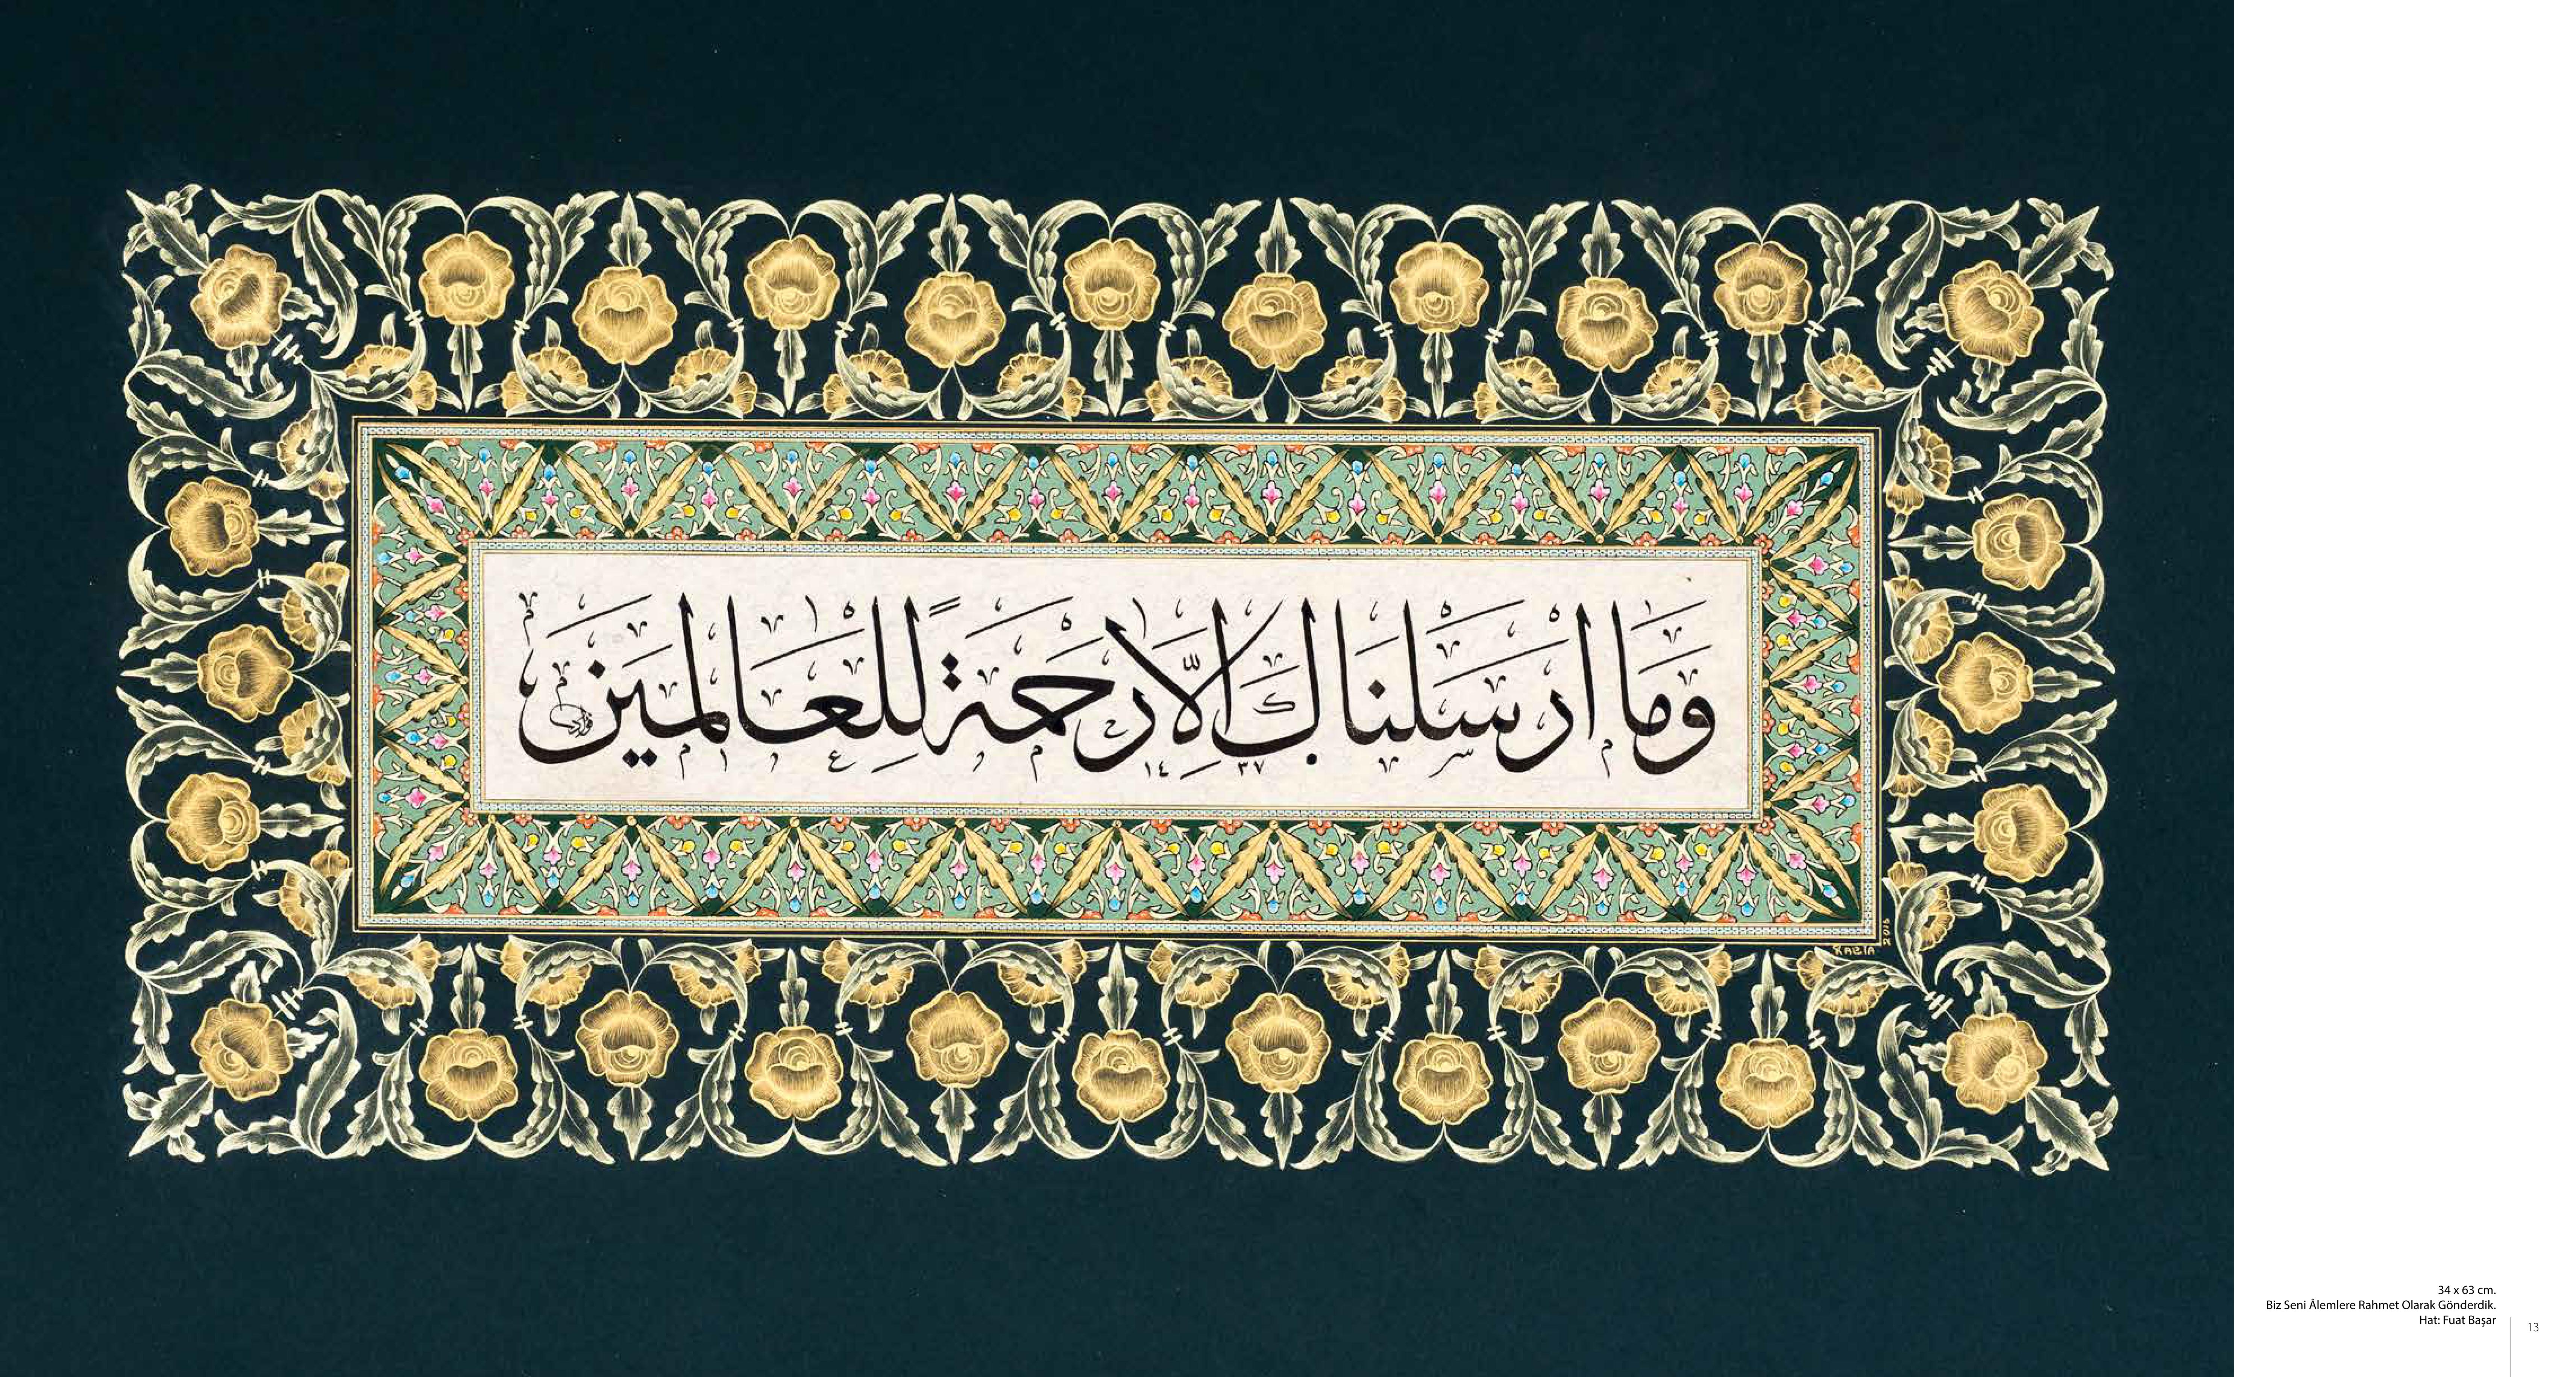 وَمَا اَرْسَلْنَاكَ اِلَّا رَحْمَةً لِلْعَالَمِينَ
١٤٣٧
34 x 63 cm.
Biz Seni Âlemlere Rahmet Olarak Gönderdik.
Hat: Fuat Başar
13